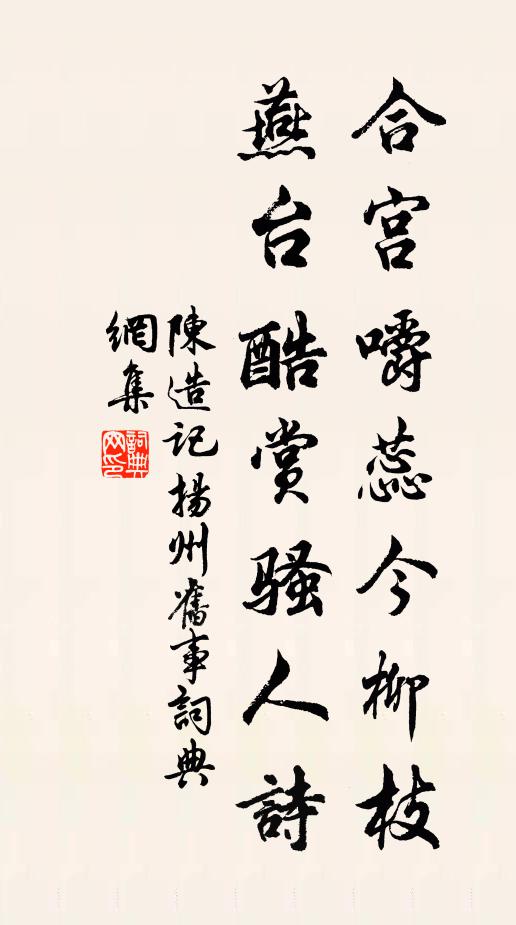 合宫嚼蕊今柳枝
燕台酷赏骚人詩
陳造记揚州舊事詞典
網集
詞典
网印